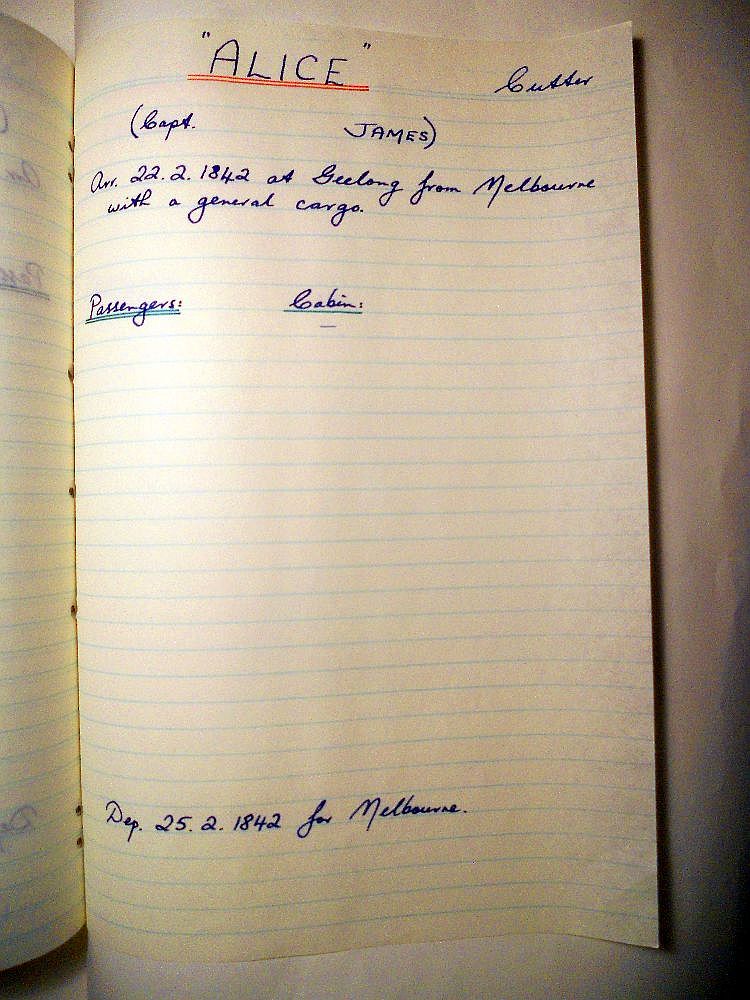 "ALICE" Cutter
(Capt. JAMES)
Arr. 22.2.1842 at Geelong from Melbourne
with a general cargo.
Passengers: Cabin:
—
Dep. 25.2.1842 for Melbourne.